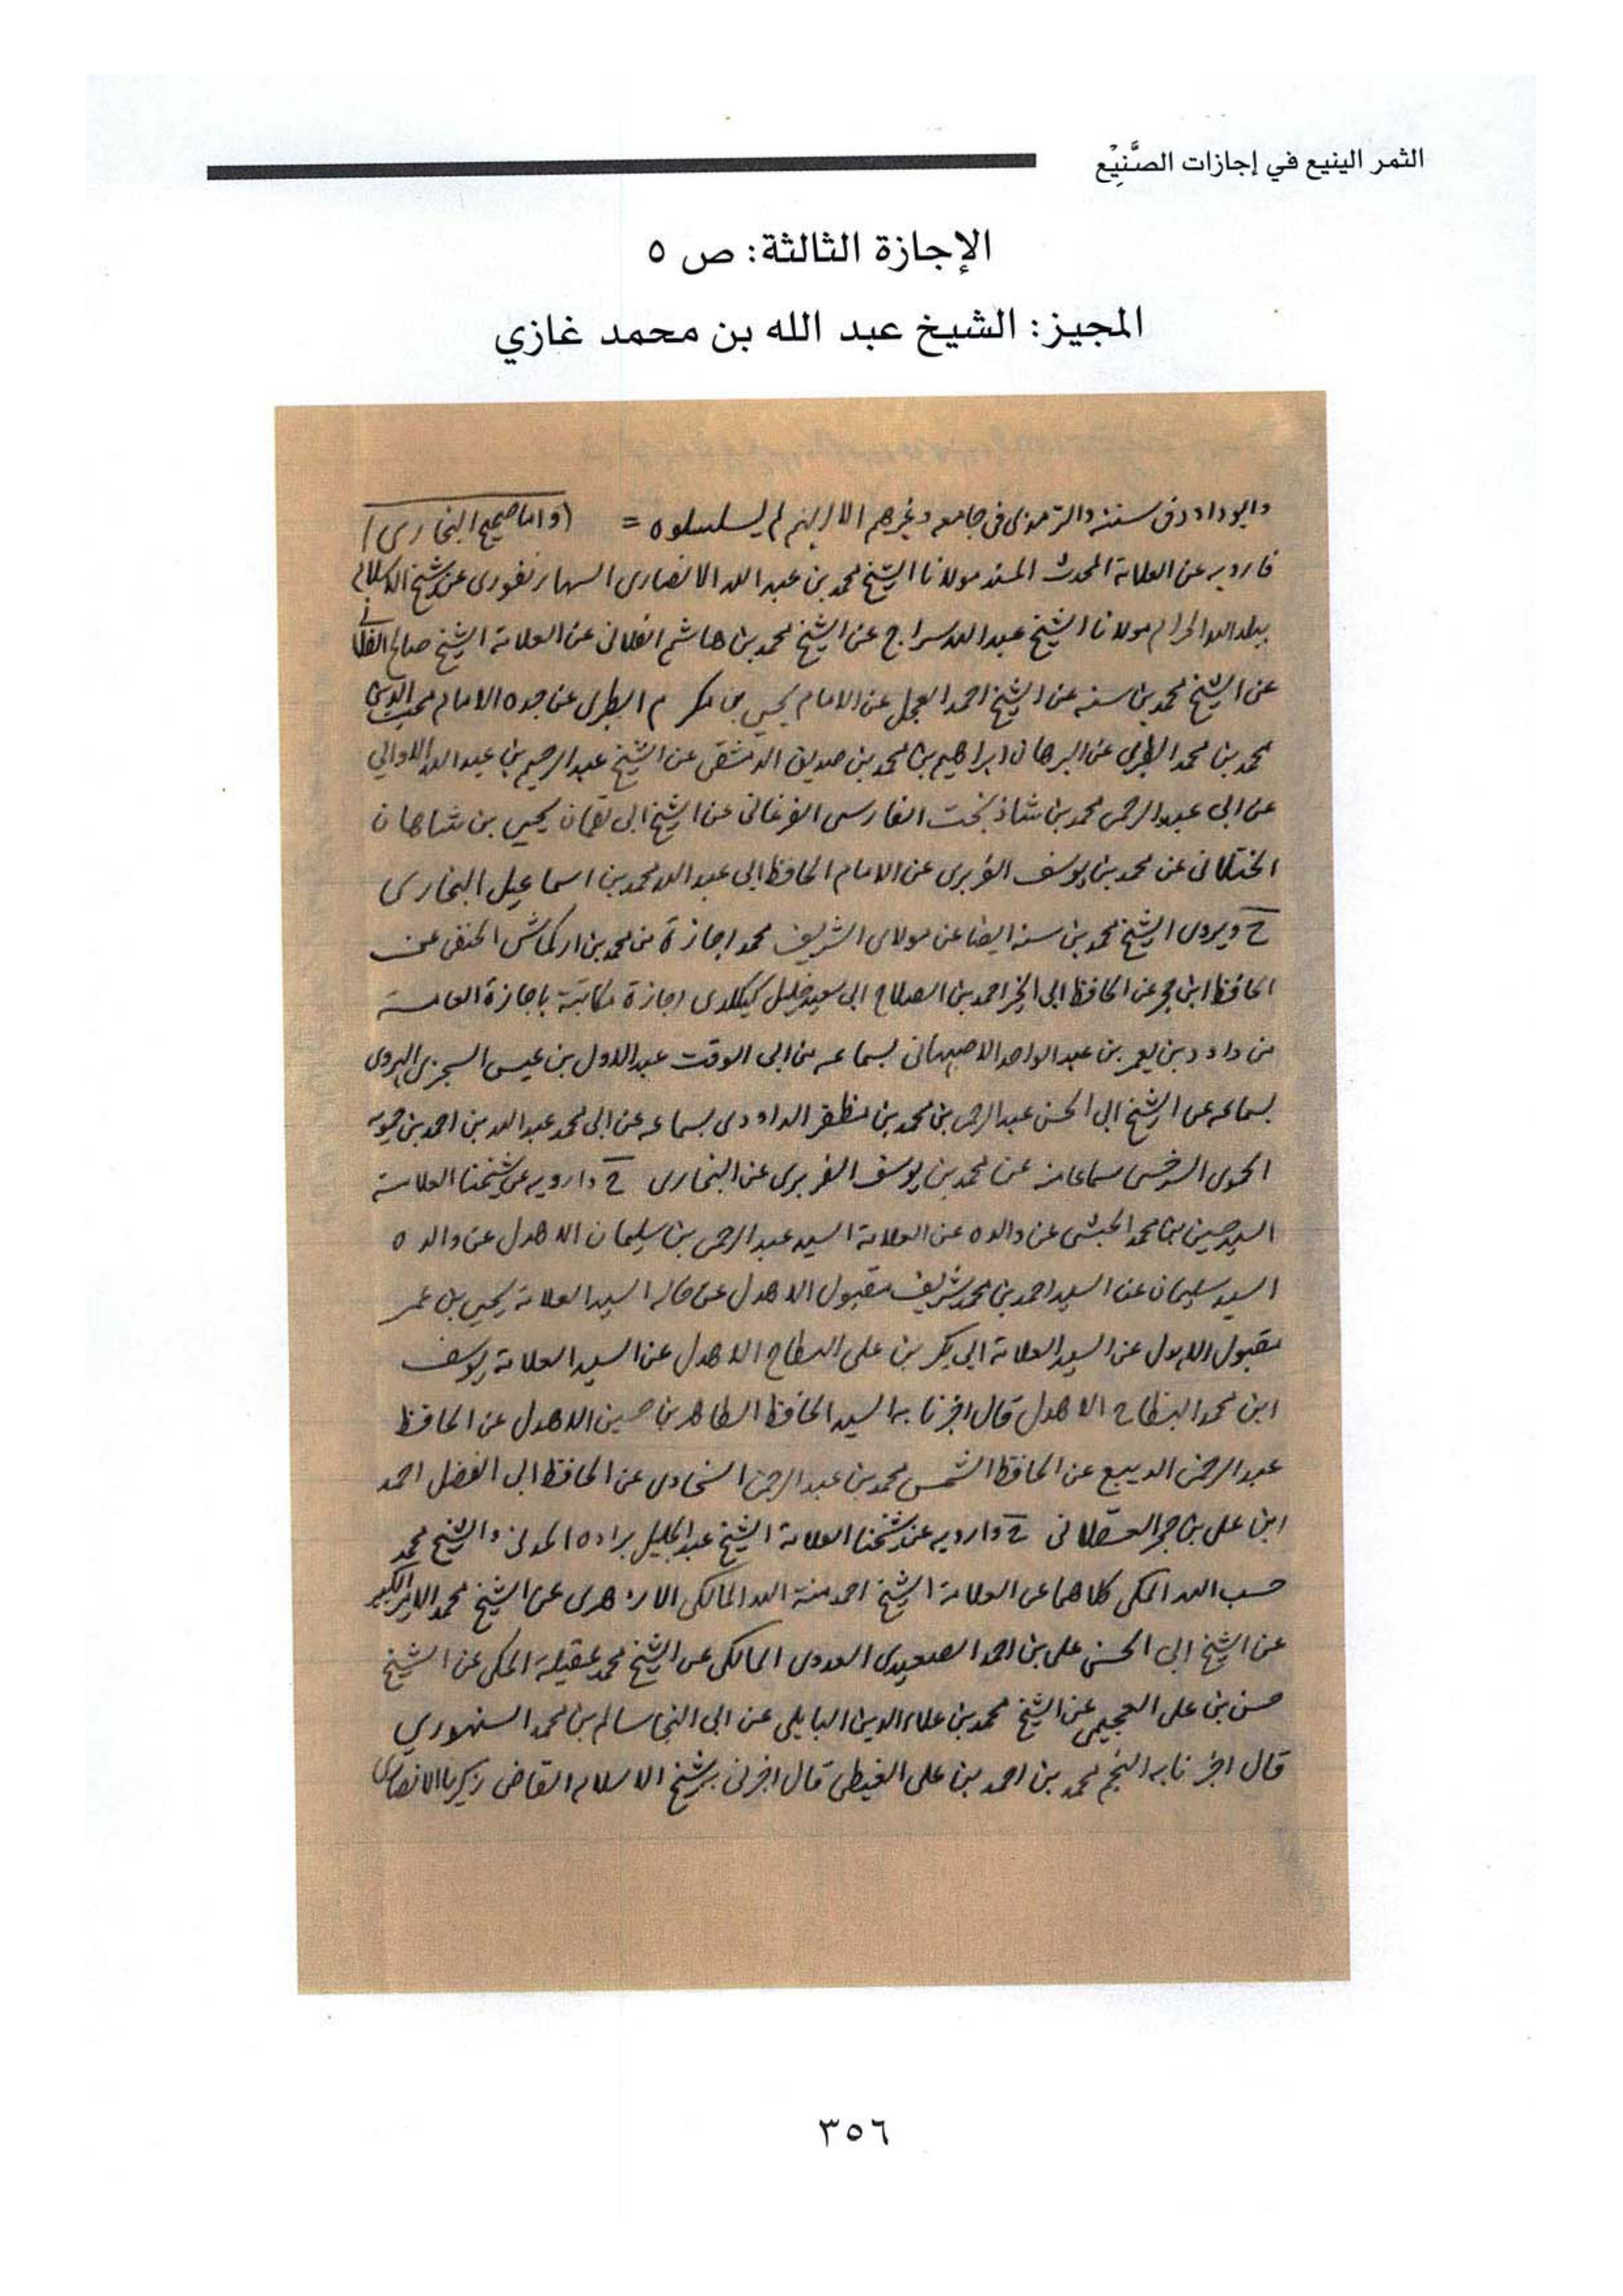 الثمر الينيع في إجازات الصَّنِيْع
الإجازة الثالثة: ص ٥
المجيز: الشيخ عبد الله بن محمد غازي
وابو داود في سننه والترمذي في جامعه وغيرهم الا انهم لم يسلسلوه = (واما صحيح البخاري)
فارويه عن العلامة المحدث المسند مولانا الشيخ محمد بن عبد الله الانصاري السهارنفوري عن شيخ الاسلام
ببلد الله الحرام مولانا الشيخ عبد الله سراج عن الشيخ محمد بن هاشم الفلاني عن العلامة الشيخ صالح الفلاني
عن الشيخ محمد بن سنه عن الشيخ احمد العجل عن الامام يحيى بن مكرم الطبري عن جده الامام محب الدين
محمد بن محمد الطبري عن البرهان ابراهيم بن محمد بن صديق الدمشقي عن الشيخ عبد الرحيم بن عبد الله الاوالي
عن ابي عبد الرحمن محمد بن شاذ بخت الفارسي الفرغاني عن الشيخ ابي لقمان يحيى بن شاهان
الختلاني عن محمد بن يوسف الفربري عن الامام الحافظ ابي عبد الله محمد بن اسماعيل البخاري
ح ويروي الشيخ محمد بن سنه ايضا عن مولاي الشريف محمد اجازة من محمد بن اركماش الحنفي عن
الحافظ ابن حجر عن الحافظ ابي الخير احمد بن الصلاح ابي سعيد خليل كيكلدي اجازة مكاتبة باجازة العامة
من داود بن يعمر بن عبد الواحد الاصبهاني بسماعه من ابي الوقت عبد الاول بن عيسى السجزي الهروي
بسماعه عن الشيخ ابي الحسن عبد الرحمن بن محمد بن مظفر الداودي بسماعه عن ابي محمد عبد الله بن احمد بن حمويه
الحموي السرخسي سماعا عن محمد بن يوسف الفربري عن البخاري ح وارويه عن شيخنا العلامة
السيد حسين بن محمد الحبشي عن والده عن العلامة السيد عبد الرحمن بن سليمان الاهدل عن والده
السيد سليمان عن السيد احمد بن محمد شريف مقبول الاهدل عن خاله السيد العلامة يحيى بن عمر
مقبول الاهدل عن السيد العلامة ابي بكر بن علي البطاح الاهدل عن السيد العلامة يوسف
ابن محمد البطاح الاهدل قال اخبرنا به السيد الحافظ الطاهر بن حسين الاهدل عن الحافظ
عبد الرحمن الديبع عن الحافظ الشمس محمد بن عبد الرحمن السخاوي عن الحافظ ابي الفضل احمد
ابن علي بن حجر العسقلاني ح وارويه عن شيخنا العلامة الشيخ عبد الجليل براده المدني والشيخ محمد
حسب الله المكي كلاهما عن العلامة الشيخ احمد منة الله المالكي الازهري عن الشيخ محمد الامير الكبير
عن الشيخ ابي الحسن علي بن احمد الصعيدي العدوي المالكي عن الشيخ محمد عقيلة المكي عن الشيخ
حسن بن علي العجيمي عن الشيخ محمد بن علاء الدين البابلي عن ابي النجا سالم بن محمد السنهوري
قال اخبرنا به النجم محمد بن احمد بن علي الغيطي قال اخبرني به شيخ الاسلام القاضي زكريا الانصاري
٣٥٦